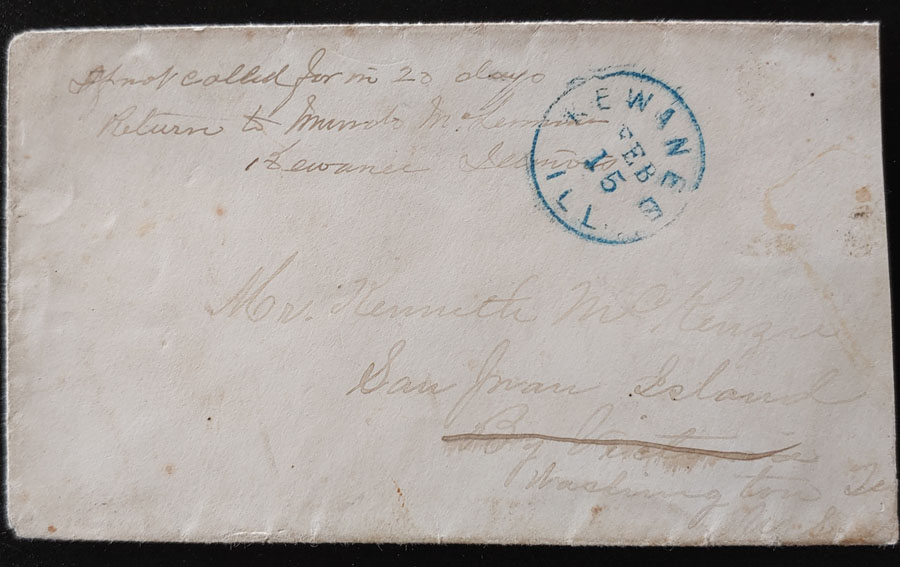 If not called for in 20 days
Return to Murdo McLennan
Kewanee Illinois
KEWANEE ILL.
FEB
15
Mr. Kenneth McKenzie
San Juan Island
By Victoria
Washington Te